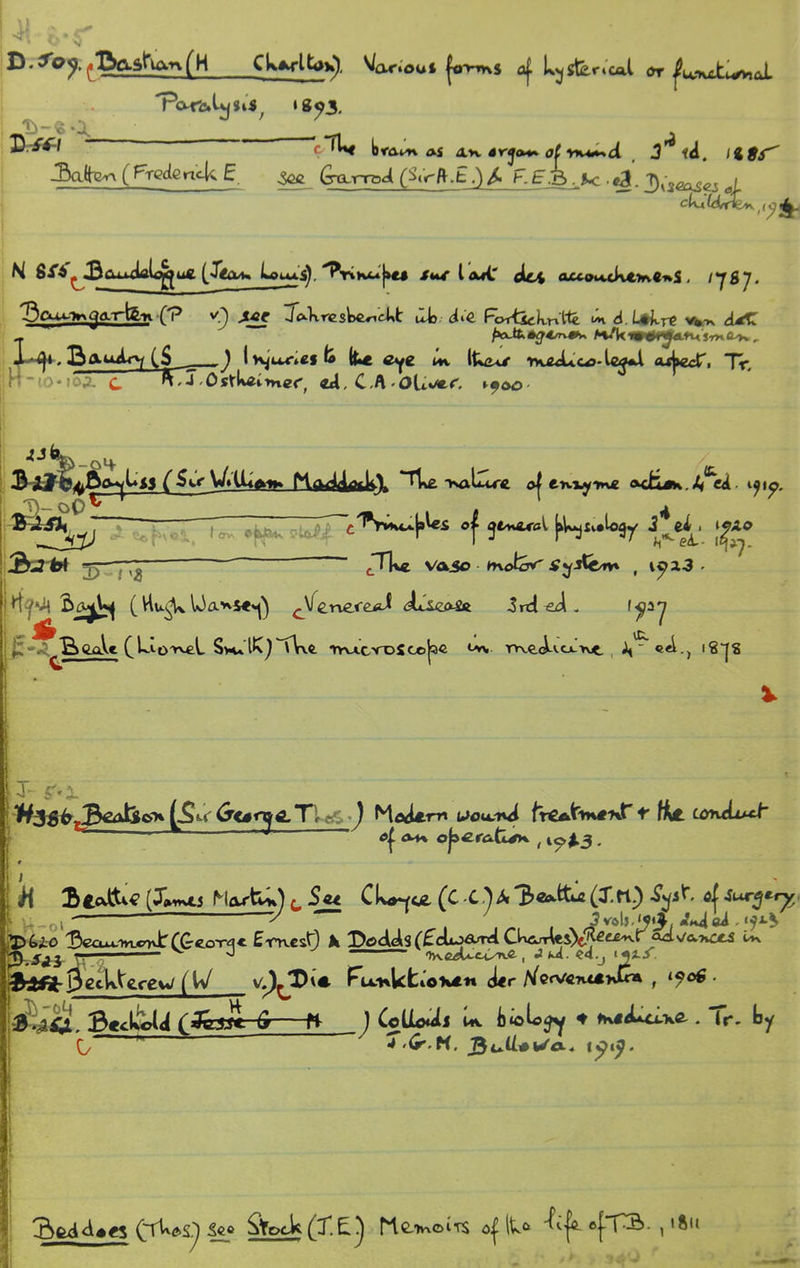 D.507. Bastian (H Charlton). Various forms of hysterical or functional
Paralysis, 1893.
D.551 The brain as an organ of mind, 3rd id. 1885
Batten (Frederick E. See Garrod (Sir A.E.) & F.E.B. &c. ed. Diseases of
children, 19
N 855 Baudelocque (Jean Louis). Principes sur l'art des accouchements. 1787.
Baumgarten (P v.) see Jahresbericht üb. die Fortschritte in d. Lehre von den
J-91. Baudry (S ) Injuries to the eye in their medico-legal aspect. Tr.
H-10-102. A.J. Ostheimer, ed. C.A. Oliver. 1900.
Bayliss (Sir William Maddock). The nature of enzyme action. 4th ed. 1919.
D-00
Principles of general physiology 3rd ed. 1920
4th ed. 1927.
D-18 The vaso-motor System, 1923.
Bayly (Hugh Wansey) Venereal disease 3rd ed. 1927
Beale (Lionel S.) The microscope in medicine, 4th ed., 1878
J-5.2
H386 Beatson (Sir George T. ) Modern wound treatment & the conduct
of an operation, 1923.
H Beattie (James Martin) See Choyce (C.C.) & Beattie (J.M.) Syst. of Surgery,
3 vols. 2nd ed. 1923
D620 Beaumont (George Ernest) & Dodds (Edward Charles) Recent advances in
medicine, 2nd. ed., 1925.
Bechterew (W v.) Die Funktionen der Nervencentra, 1908.
Bechhold (H ) Colloids in biology & medicine. Tr. by
J.G.M. Bullowa. 1919.
Beddoes (Thos.) see Stock (J.E.) Memoirs of the life of T.B., 1811